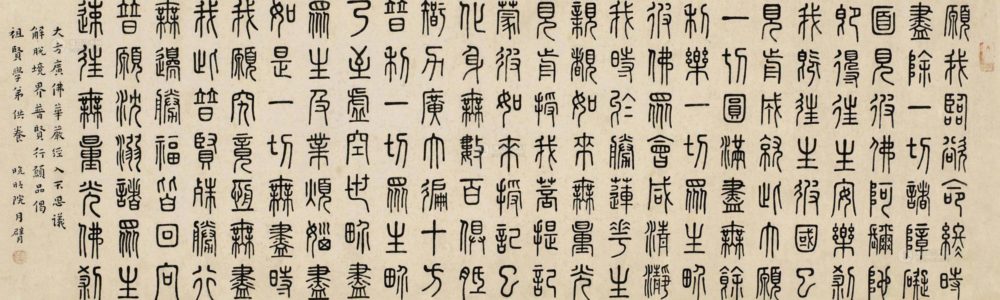 願我臨欲命終時
盡除一切諸障礙
面見彼佛阿彌陀
即得往生安樂剎
我既往生彼國已
見前成就此大願
一切圓滿盡無餘
利樂一切眾生界
彼佛眾會咸清淨
我時於勝蓮花生
親覩如來無量光
見前授我菩提記
蒙彼如來授記已
化身無數百俱胝
智力廣大徧十方
普利一切眾生界
乃至虛空世界盡
眾生及業煩惱盡
如是一切無盡時
我願究竟恆無盡
我此普賢殊勝行
無邊勝福皆回向
普願沈溺諸眾生
速往無量光佛剎
大方廣佛華嚴經入不思議
解脫境界普賢行願品偈
祖賢學弟供養 晚晴院月臂